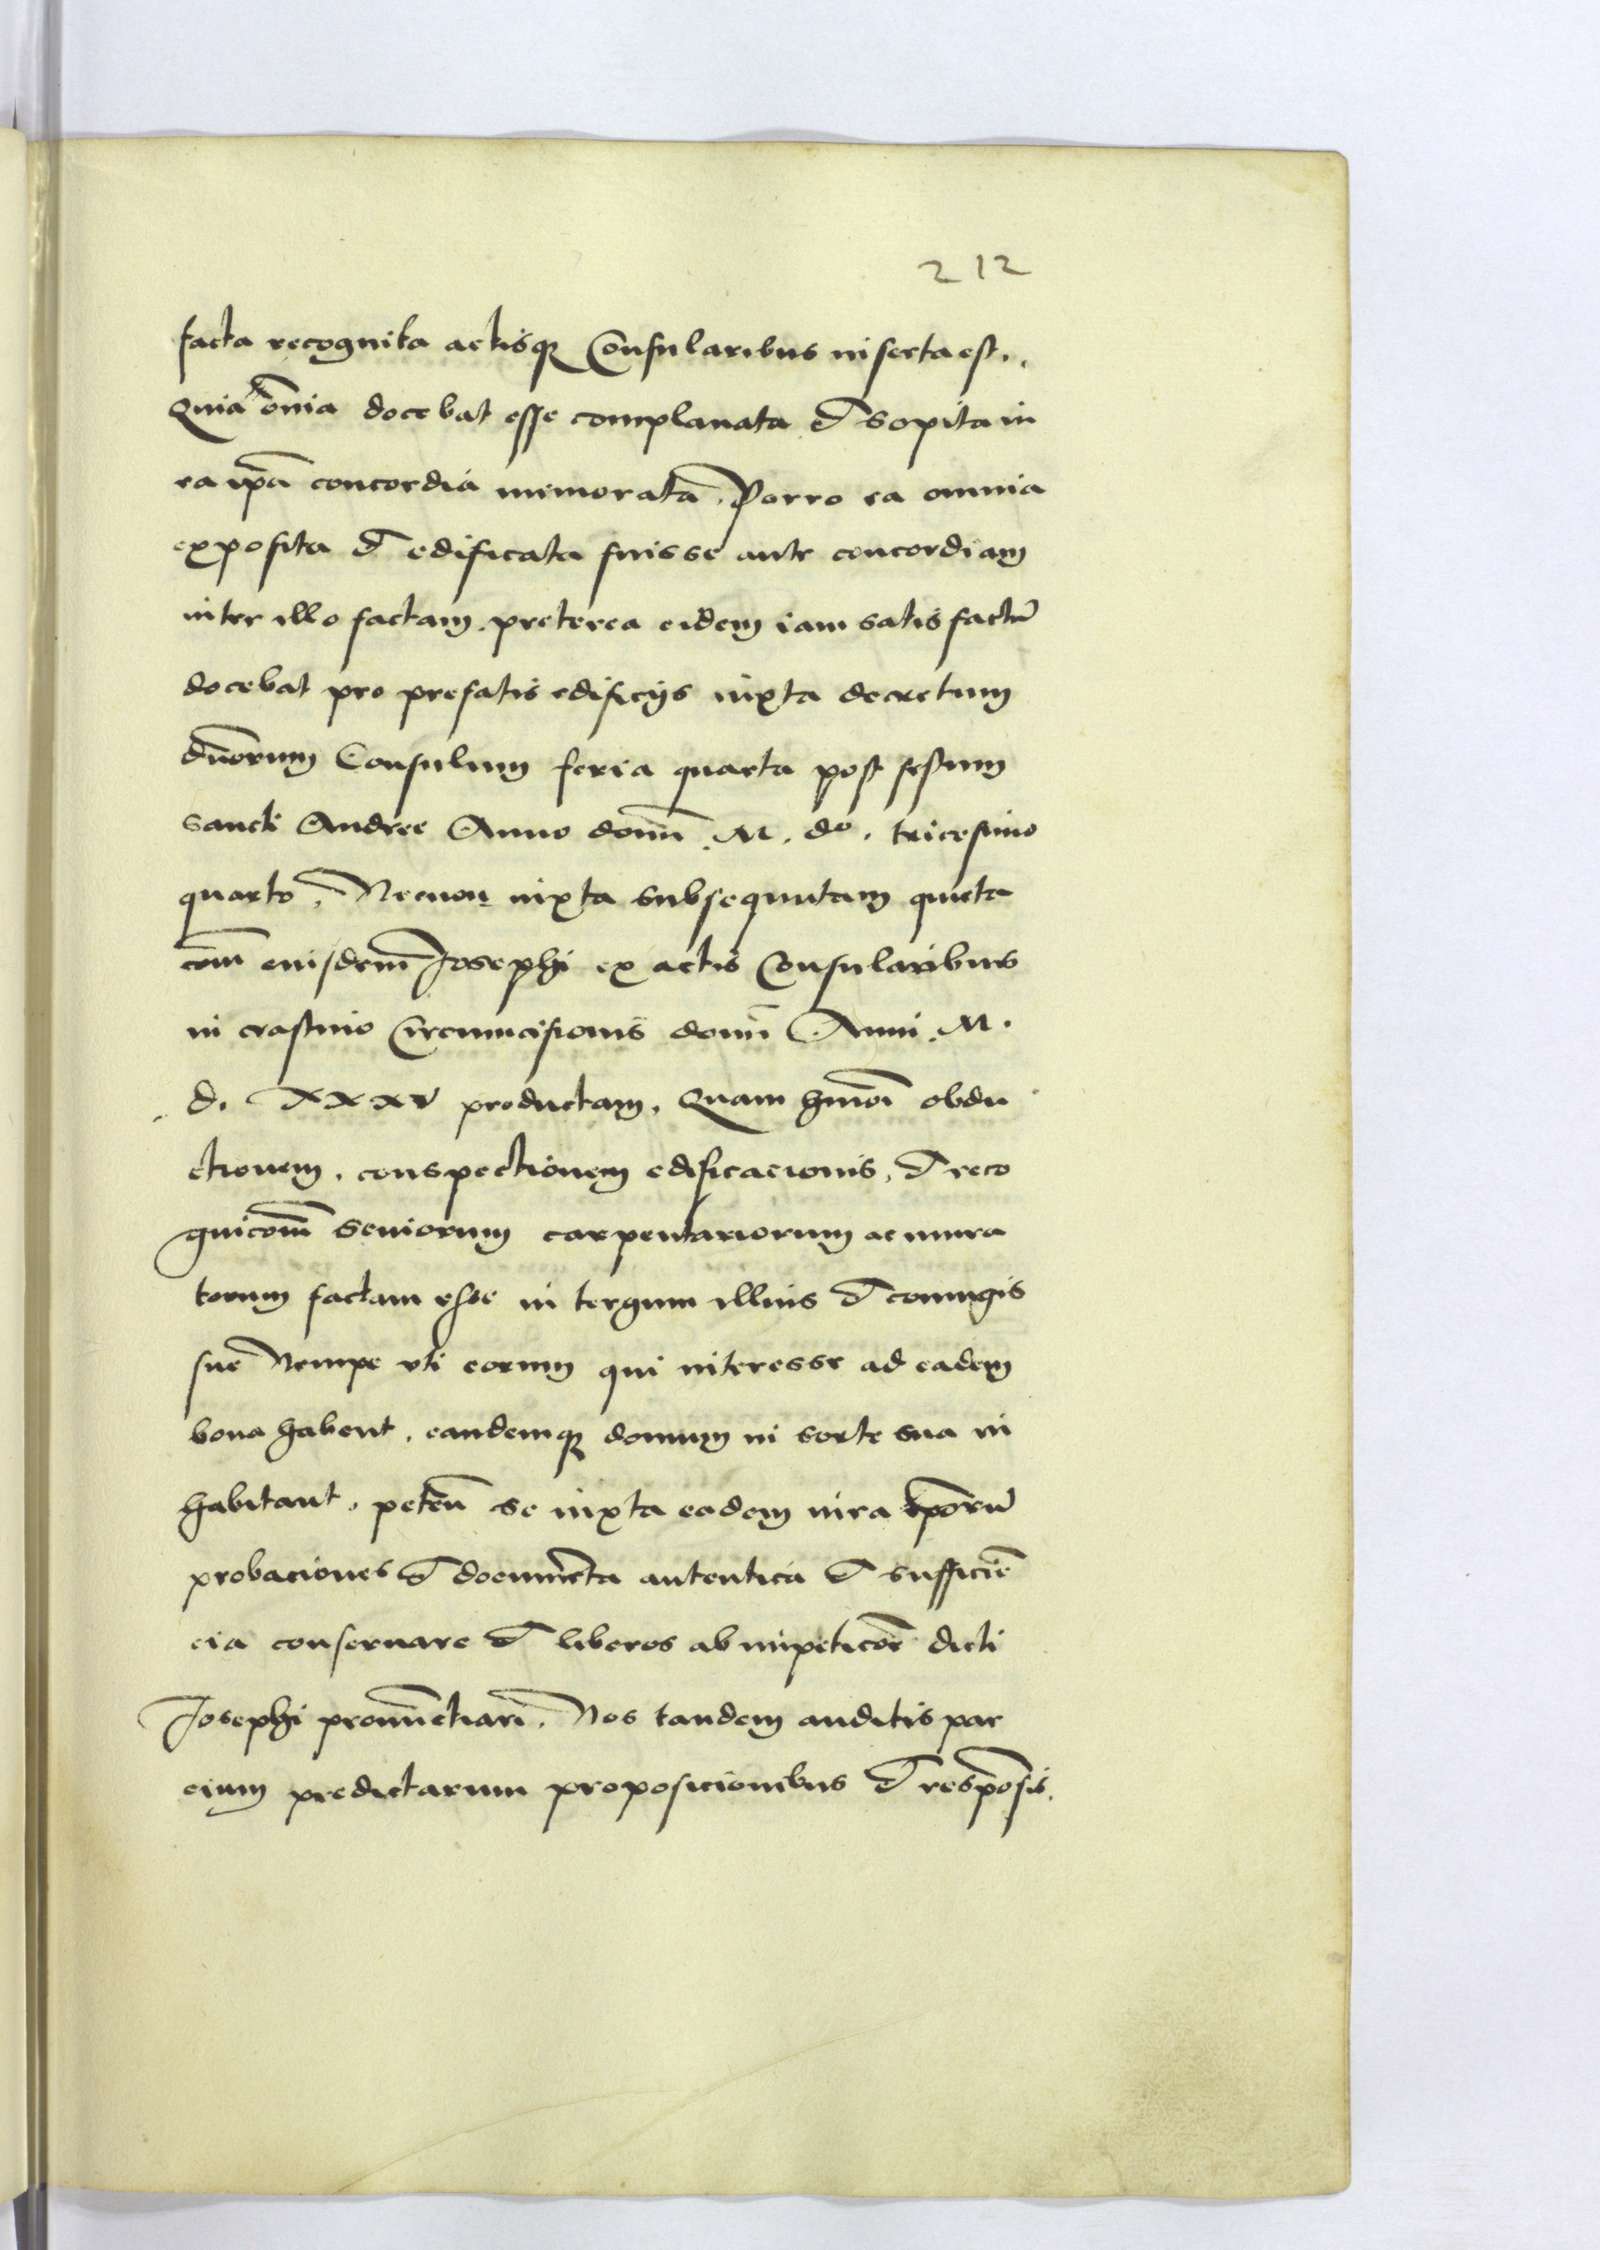 212
facta recognita actisq̃ Consularibus inserta est.
Quia om̃ia docebat esse complanata et sopita in
ea ip̃a concordia memorata. Porro ea omnia
exposita et edificata fuisse ante concordiam
inter illo factam. preterea eidem iam satis factũ
docebat pro prefatis edificijs iuxta decretum
dñorum Consulum feria quarta post festum
sancti Andree Anno domĩ .M. do. tricesimo
quarto, Necnon iuxta subsequutam quieta
com̃ euisdem̃ Josephi ex actis Consularibus
in crastino Circumcisionis domĩ Anni .M.
d. xxxv productam. Quam hmõi obdu
ctionem. conspectionem edificacionis, et reco
gnicom̃ seniorum carpentariorum ac mura
torum factam esse in tergum illius et coniugis
sue Nempe vti eorum qui interesse ad eadem
bona habent. eandemq̃ domum in sorte sua in
habitant. peteñ se iuxta eadem iura ip̃orũ
probaciones et documẽta autentica et sufficiẽ
cia conseruare et liberos ab impeticoẽ dicti
Josephi pronũctiari. Nos tandem auditis par
cium predictarum proposicionibus et respõsis.